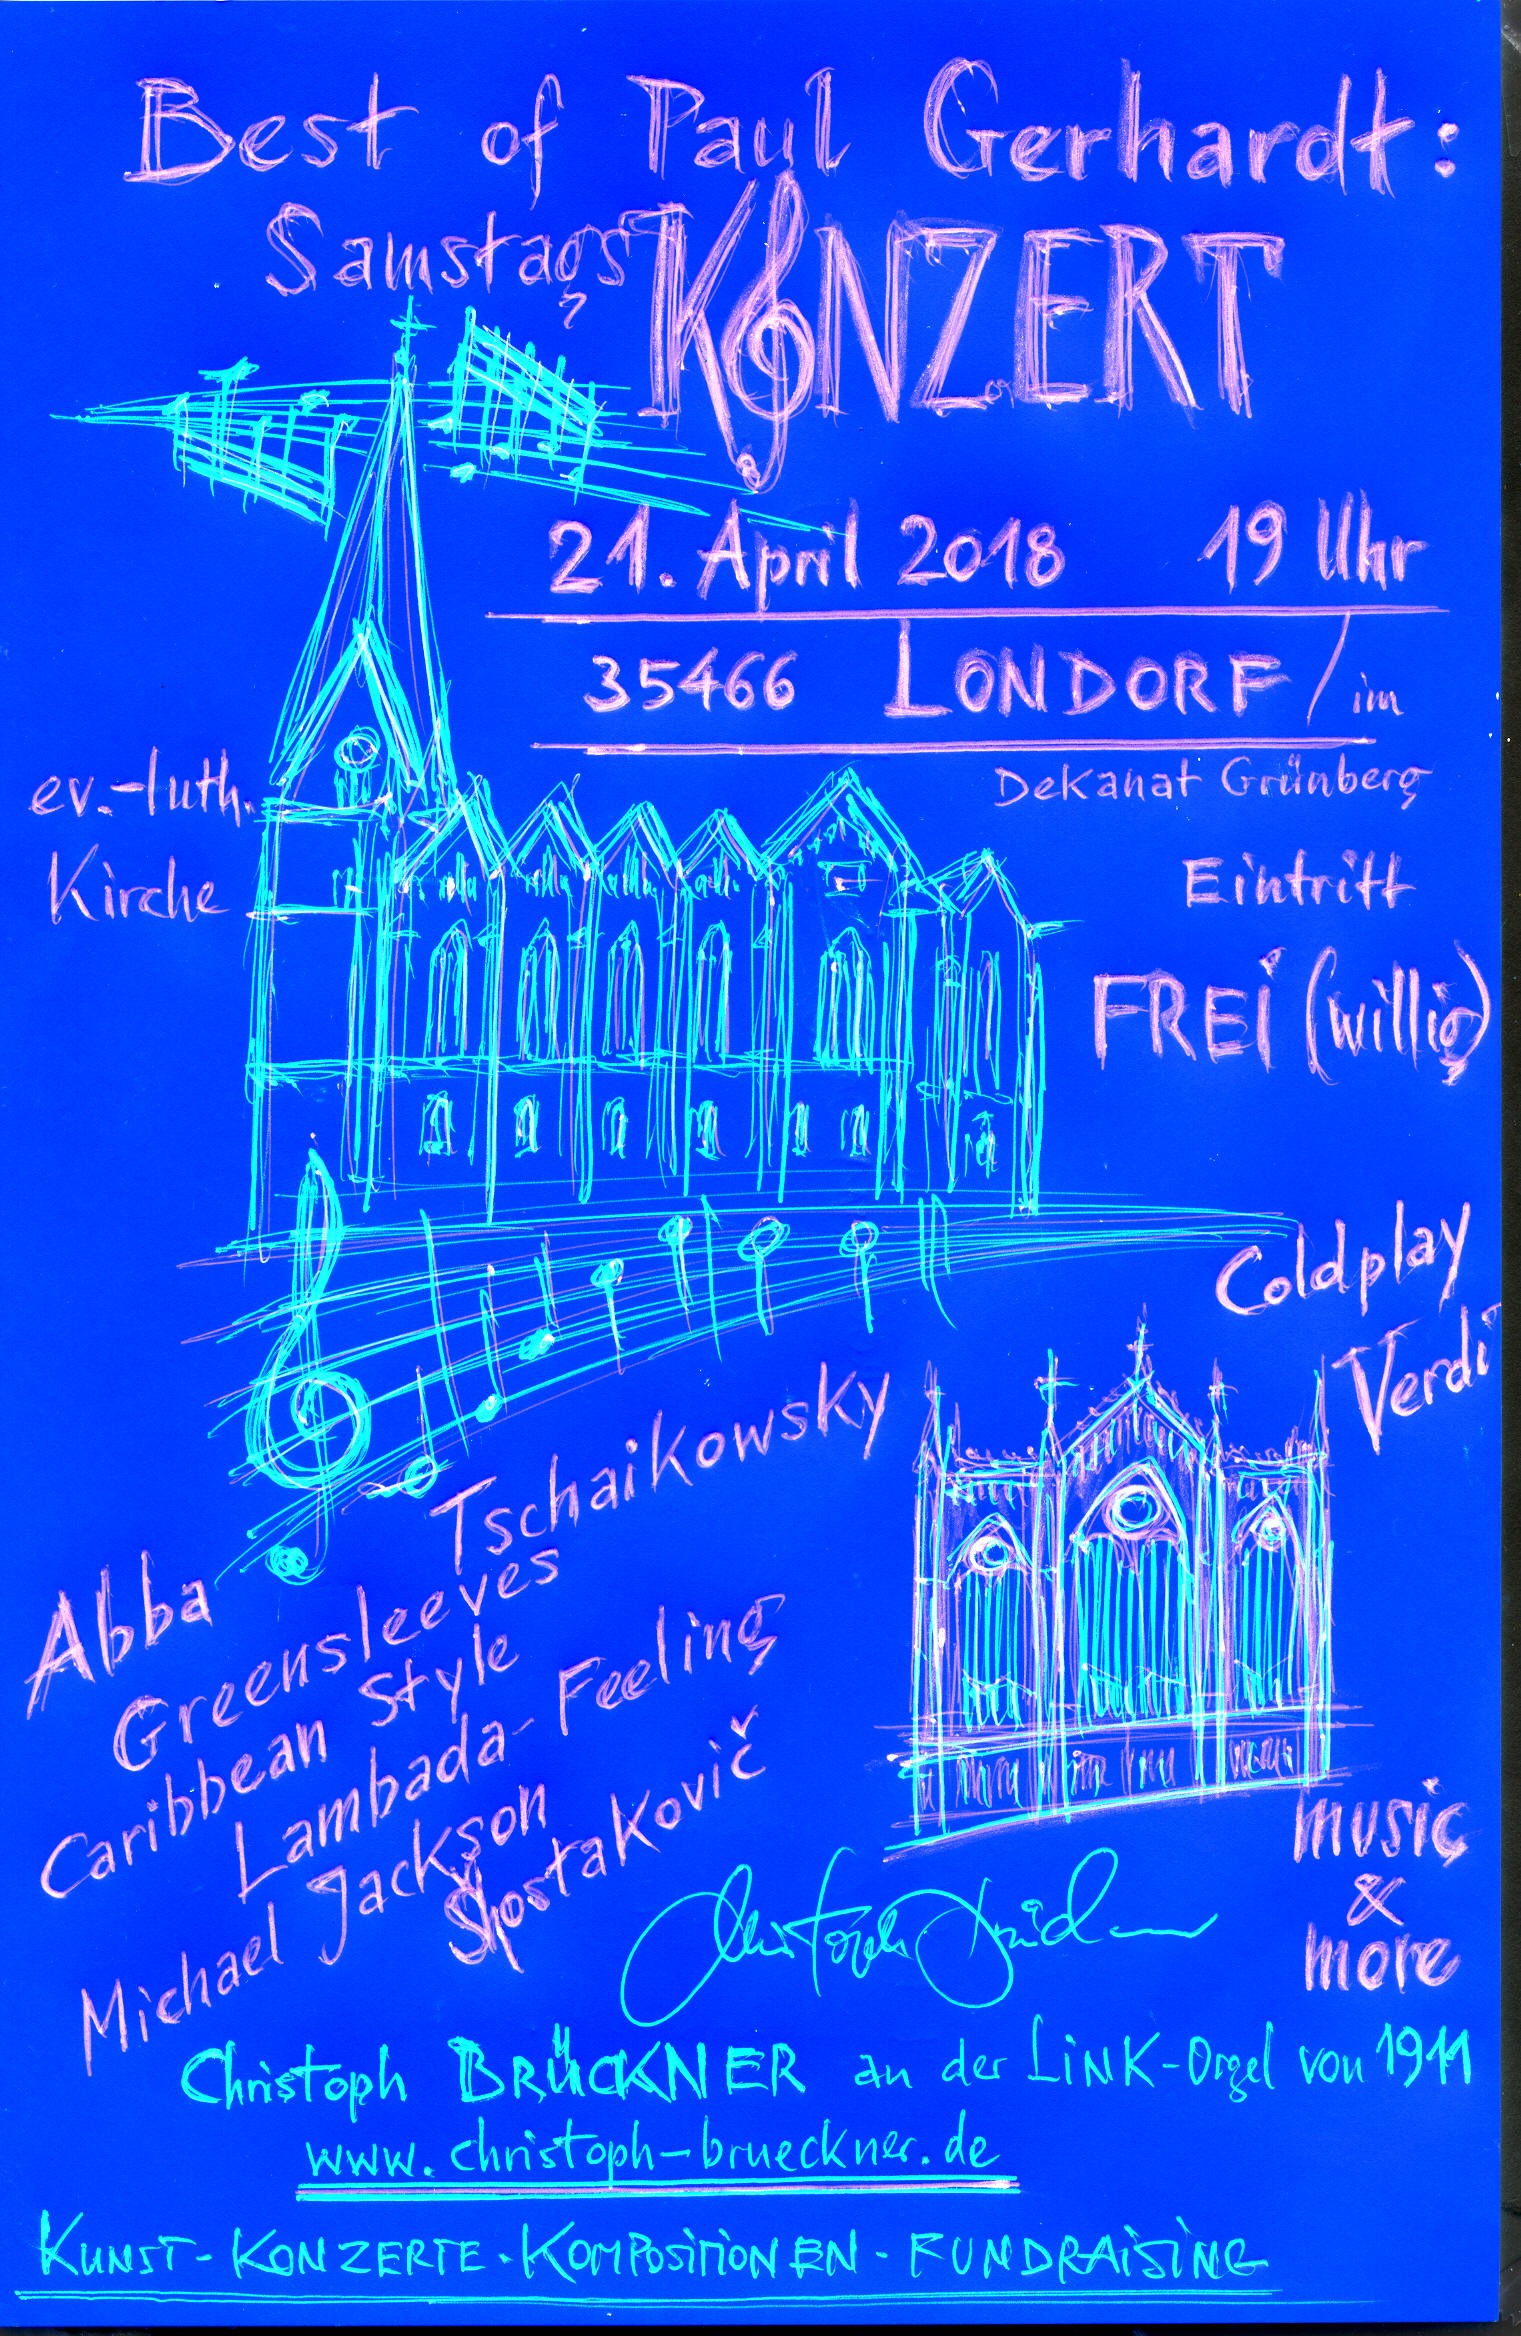 Best of Paul Gerhardt:
Samstags KONZERT
21. April 2018 19 Uhr
35466 LONDORF / im
Dekanat Grünberg
ev.-luth.
Kirche
Eintritt
FREi (willig)
Coldplay
Verdi
Tschaikowsky
Abba
Greensleeves
Caribbean Style
Lambada-Feeling
Michael Jackson
Shostakovič
music
&
more
Christoph BRÜCKNER an der LiNK-Orgel von 1911
www.christoph-brueckner.de
KUNST - KONZERTE - KOMPOSiTiONEN - FUNDRAiSiNG